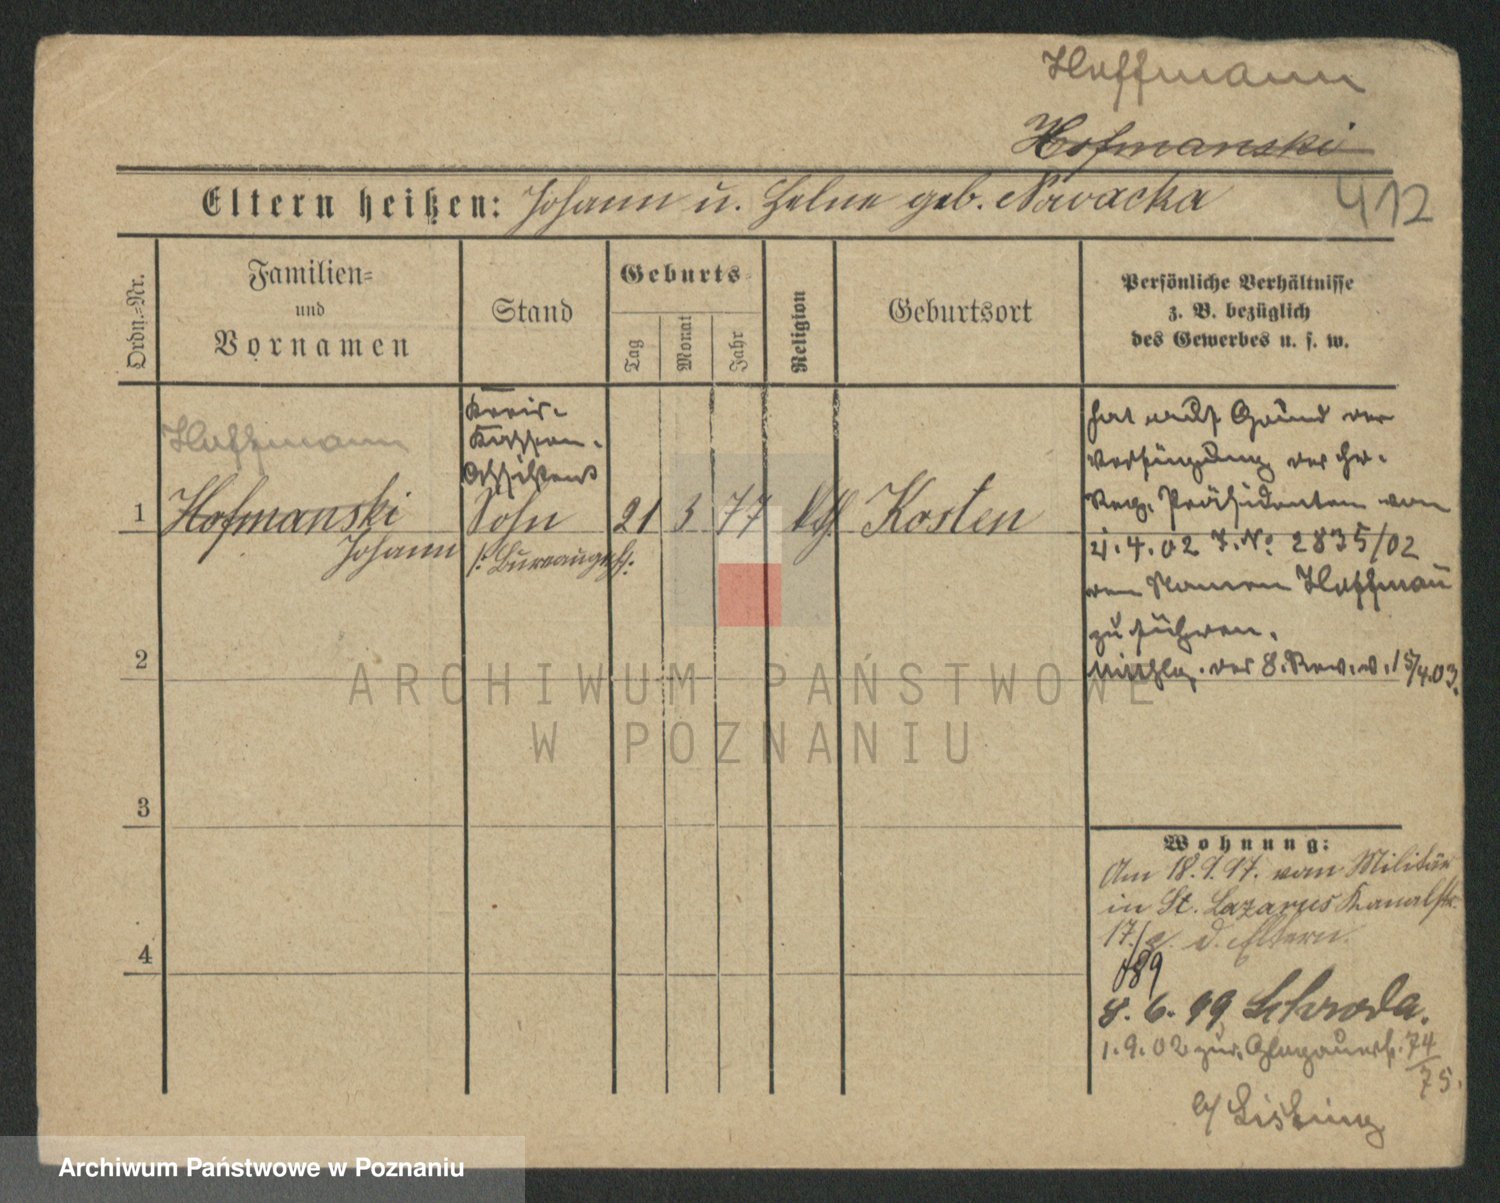 Hoffmann
Hofmanski
Eltern heißen: Johann u. Helene geb. Nowacka
412
Ordn.=Nr.
Familien=
und
Vornamen
Stand
Geburts=
Tag
Monat
Jahr
Religion
Geburtsort
Persönliche Verhältnisse
z. B. bezüglich
des Gewerbes u. s. w.
Hoffmann
Kreis-
Kassen-
Assistent
1 Hofmanski Sohn 21 3 77 kth Kosten
Johann /: Bureaugeh:
hat auf Grund der
Verfügung des Hr.
Reg. Präsidenten vom
21.4.02 J. No 2835/02
den Namen Hoffmann
zu führen.
der 8. Rev. v. 15/4.03.
2
3
4
Wohnung:
Am 18.9.97. vom Militär
in St. Lazarus Kanalstr.
17/ z. d. Eltern.
189
8.6.99 Schroda.
1.9.02 zur. Glogauerst. 74/75.
b/
ARCHIWUM PAŃSTWOWE
W POZNANIU
Archiwum Państwowe w Poznaniu